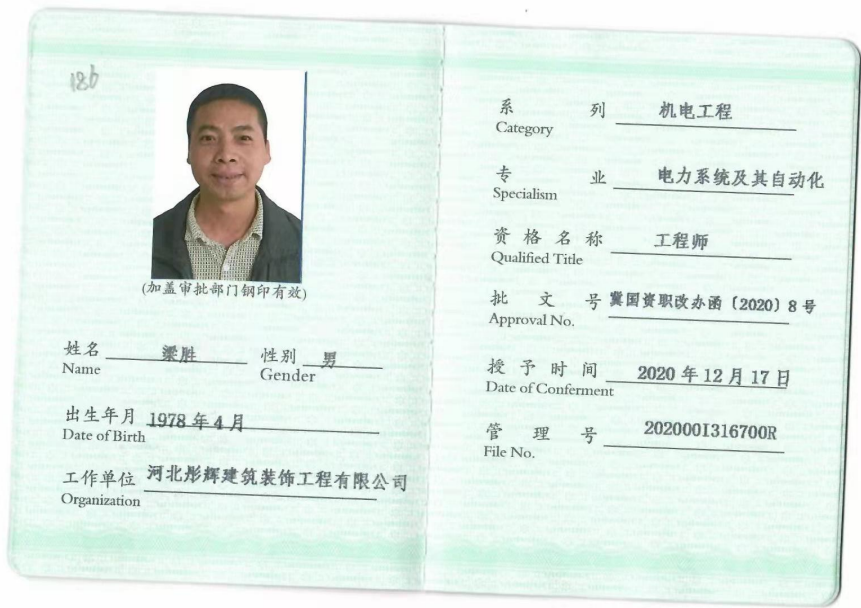 186
(加盖审批部门钢印有效)
姓名 梁胜 性别 男
Name Gender
出生年月 1978年4月
Date of Birth
工作单位 河北彤辉建筑装饰工程有限公司
Organization
系 列 机电工程
Category
专 业 电力系统及其自动化
Specialism
资格名称 工程师
Qualified Title
批 文 号 冀国资职改办函〔2020〕8号
Approval No.
授予时间 2020年12月17日
Date of Conferment
管 理 号 202000I316700R
File No.